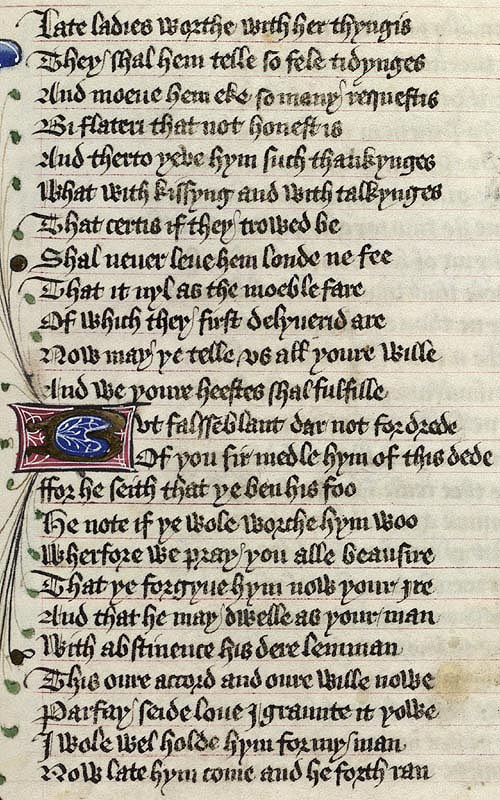 Late ladies worthe with her thyngis
They shal hem telle so fele tidynges
And moeue hem eke so many requestis
Bi flateri that not honest is
And therto yeve hym such thankynges
What with kissyng and with talkynges
That certis if they trowed be
Shal neuer leue hem londe ne fee
That it nyl as the moeble fare
Of which they first delyuerid are
Now may ye telle vs all youre wille
And we youre heestes shal fulfille
But falssemblant dar not for drede
Of you sir medle hym of this dede
ffor he seith that ye ben his foo
He note if ye wole worche hym woo
Wherfore we pray you alle beausire
That ye forgyue hym now your ire
And that he may dwelle as your man
With abstinence his dere lemman
This oure accord and oure wille nowe
Parfay seide loue I graunte it yowe
I wole wel holde hym for my man
Now late hym come and he forth ran